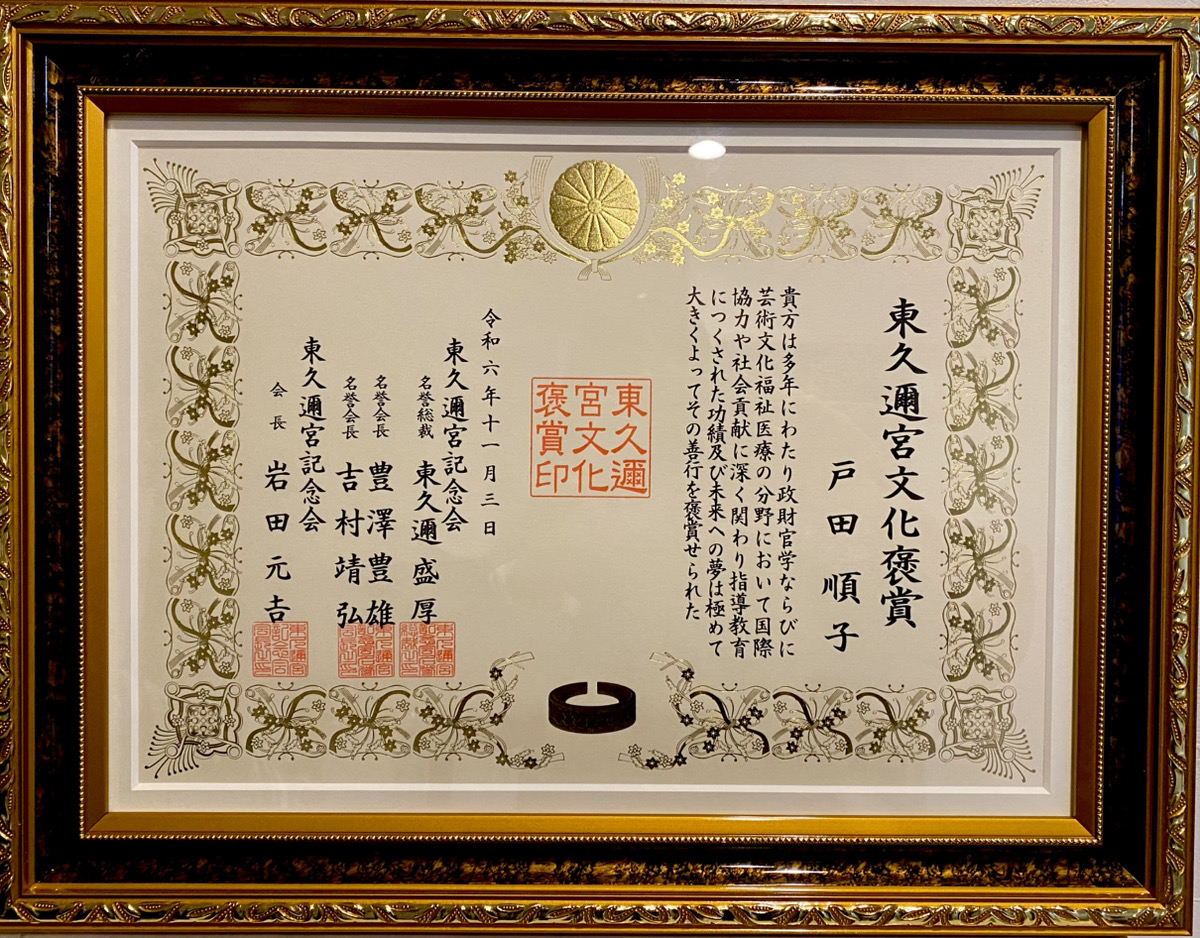 東久邇宮文化褒賞
戸田順子
貴方は多年にわたり政財官学ならびに
芸術文化福祉医療の分野において国際
協力や社会貢献に深く関わり指導教育
につくされた功績及び未来への夢は極めて
大きくよってその善行を褒賞せられた
東久邇
宮文化
褒賞印
令和六年十一月三日
東久邇宮記念会
名誉総裁 東久邇盛厚
名誉会長 豊澤豊雄
名誉会長 吉村靖弘
東久邇宮記念会
会長 岩田元吉